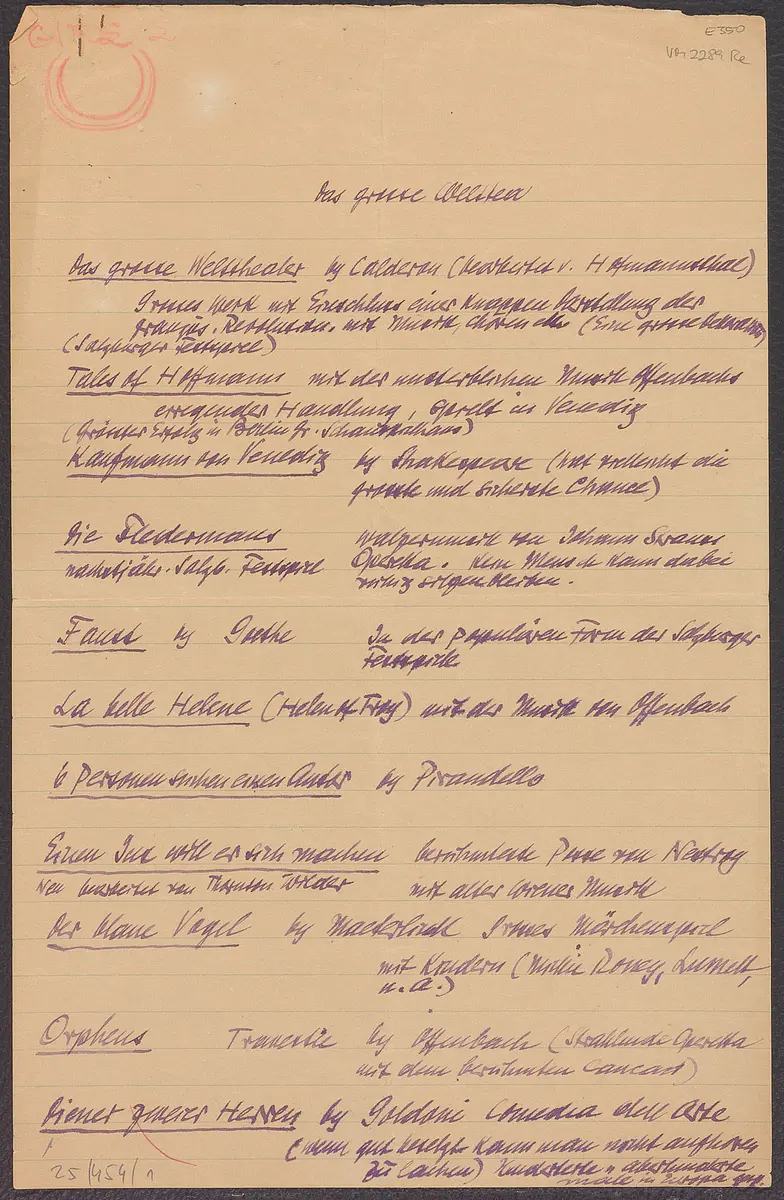 E350
VM 2289 Re
Das grosse Weltthea
Das grosse Welttheater by Calderon (bearbeitet v. Hofmannsthal)
Grosses Werk mit Einschluss einer knappen Darstellung der
französ. Revolution. mit Musik, chören etc. (Eine grosse
(Salzburger Festspiel)
Tales of Hoffmann mit der unsterblichen Musik Offenbachs
erregender Handlung, spielt in Venedig
(Grösster Erfolg in Berlin Gr. Schauspielhaus)
Kaufmann von Venedig by Shakespeare (hat vielleicht die
grosste und sicherste Chance)
Die Fledermaus Walzermusik von Johann Strauss
nachstjähr. Salzb. Festspiel Operetta. Kein Mensch kann dabei
ruhig sitzen bleiben.
Faust by Goethe In der populären Form der Salzburger
Festspiele
La belle Helene (Helen of Troy) mit der Musik von Offenbach
6 Personen suchen einen Autor by Pirandello
Einen Jux will er sich machen berühmteste Posse von Nestroy
Neu bearbeitet von Thornton Wilder mit alter Wiener Musik
Der blaue Vogel by Maeterlinck Grosses Märchenspiel
mit Kindern (Mickie Roney, Lumett,
u. A.)
Orpheus Travestie by Offenbach (Strahlende Operetta
mit dem berühmten Cancan)
Diener zweier Herren by Goldoni Comedia dell Arte
(wenn gut besetzt kann man nicht aufhören
zu lachen) Hunderte u. aberhunderte
male in Europa gesp.
25/454/1